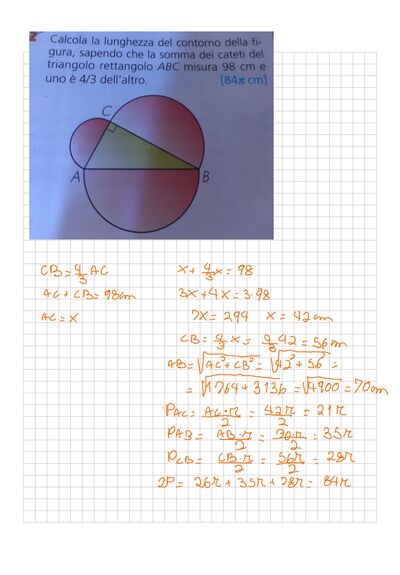 Calcola la lunghezza del contorno della fi-
gura, sapendo che la somma dei cateti del
triangolo rettangolo ABC misura 98 cm e
uno è 4/3 dell'altro. [84π cm]
C
A
B
CB = 4/3 AC
AC + CB = 98cm
AC = x
x + 4/3 x = 98
3x + 4x = 3·98
7x = 294 x = 42cm
CB = 4/3 x = 4/3 42 = 56cm
AB = √AC² + CB² = √42² + 56² =
= √1764 + 3136 = √4900 = 70cm
PAC = AC·π/2 = 42π/2 = 21π
PAB = AB·π/2 = 70·π/2 = 35π
PCB = CB·π/2 = 56π/2 = 28π
2P = 26π + 35π + 28π = 84π